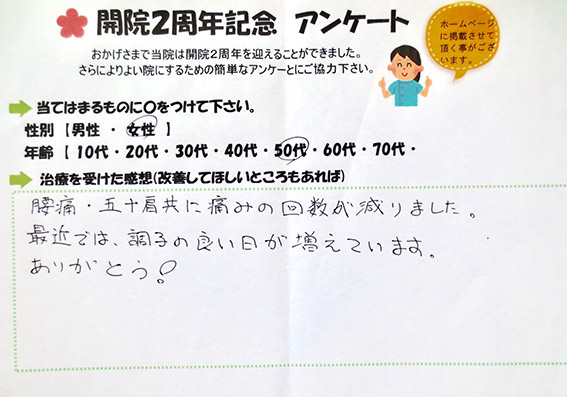 開院2周年記念 アンケート
ホームページ
に掲載させて
頂く事がござ
います。
おかげさまで当院は開院2周年を迎えることができました。
さらによりよい院にするための簡単なアンケートにご協力下さい。
当てはまるものに○をつけて下さい。
性別 【 男性 ・ 女性 】
年齢 【 10代・20代・30代・40代・50代・60代・70代・
治療を受けた感想(改善してほしいところもあれば)
腰痛・五十肩共に痛みの回数が減りました。
最近では、調子の良い日が増えています。
ありがとう!